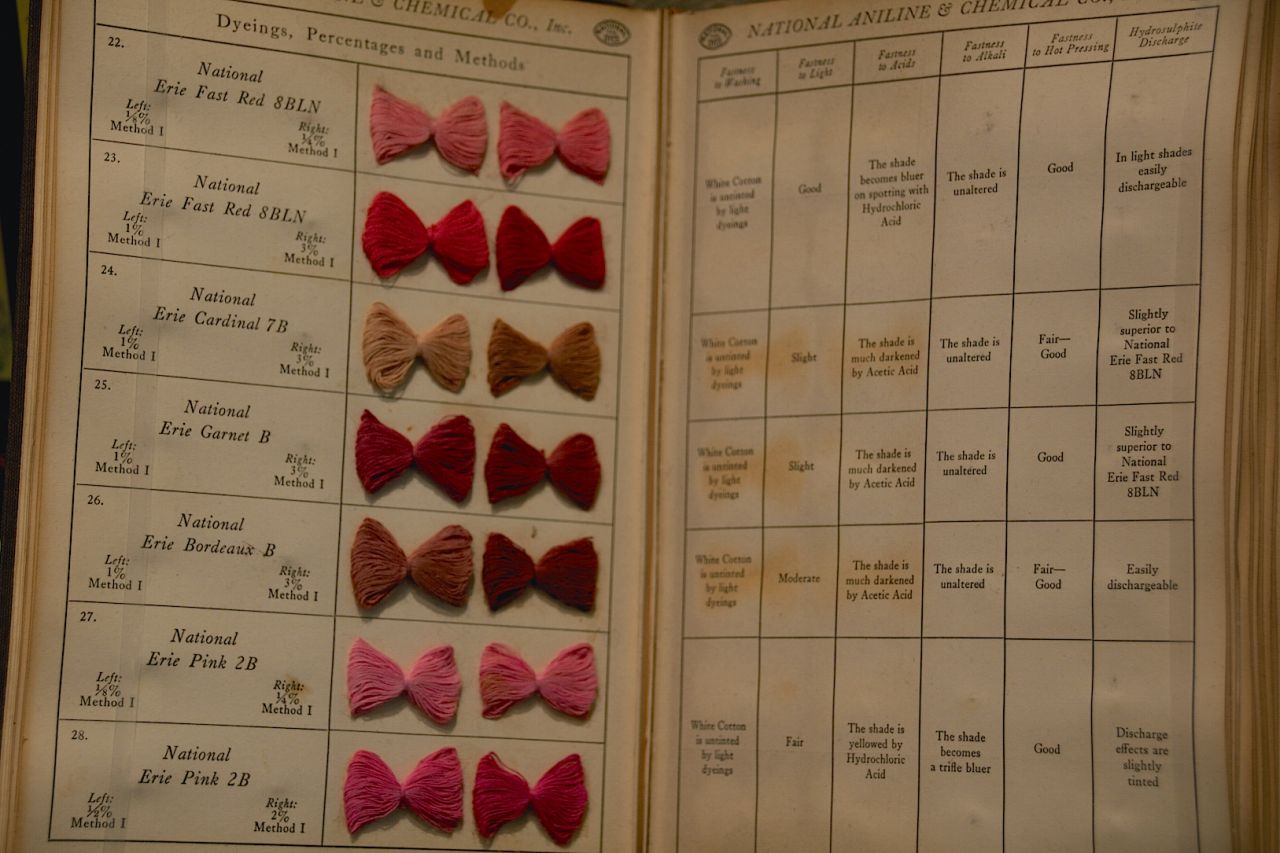 NE & CHEMICAL CO., Inc.
Dyeings, Percentages and Methods
22.
National
Erie Fast Red 8BLN
Left:
⅛%
Method I
Right:
¼%
Method I
23.
National
Erie Fast Red 8BLN
Left:
1%
Method I
Right:
3%
Method I
24.
National
Erie Cardinal 7B
Left:
1%
Method I
Right:
3%
Method I
25.
National
Erie Garnet B
Left:
1%
Method I
Right:
3%
Method I
26.
National
Erie Bordeaux B
Left:
1%
Method I
Right:
3%
Method I
27.
National
Erie Pink 2B
Left:
⅛%
Method I
Right:
¼%
Method I
28.
National
Erie Pink 2B
Left:
½%
Method I
Right:
2%
Method I
NATIONAL ANILINE & CHEMICAL CO.,
Fastness
to Washing
Fastness
to Light
Fastness
to Acids
Fastness
to Alkali
Fastness
to Hot Pressing
Hydrosulphite
Discharge
White Cotton
is untinted
by light
dyeings
Good
The shade
becomes bluer
on spotting with
Hydrochloric
Acid
The shade is
unaltered
Good
In light shades
easily
dischargeable
White Cotton
is untinted
by light
dyeings
Slight
The shade is
much darkened
by Acetic Acid
The shade is
unaltered
Fair—
Good
Slightly
superior to
National
Erie Fast Red
8BLN
White Cotton
is untinted
by light
dyeings
Slight
The shade is
much darkened
by Acetic Acid
The shade is
unaltered
Good
Slightly
superior to
National
Erie Fast Red
8BLN
White Cotton
is untinted
by light
dyeings
Moderate
The shade is
much darkened
by Acetic Acid
The shade is
unaltered
Fair—
Good
Easily
dischargeable
White Cotton
is untinted
by light
dyeings
Fair
The shade is
yellowed by
Hydrochloric
Acid
The shade
becomes
a trifle bluer
Good
Discharge
effects are
slightly
tinted